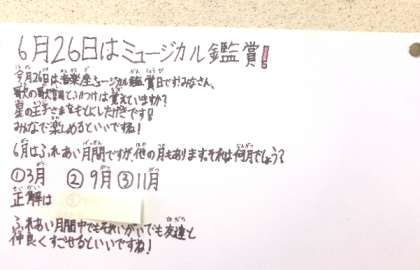 6月26日はミュージカル鑑賞!
今月26日は音楽座ミュージカル鑑賞日ですみなさん、
歌の歌詞とふりつけは覚えていますか?
星の王子さまをもとにしたげきです!!
みんなで楽しめるといいですね!
6月はふれあい月間ですが、他の月もあります。それは何月でしょう?
①3月 ②9月 ③11月
正解は
ふれあい月間中でもそれいがいでも友達と
仲良くすごせるといいですね!